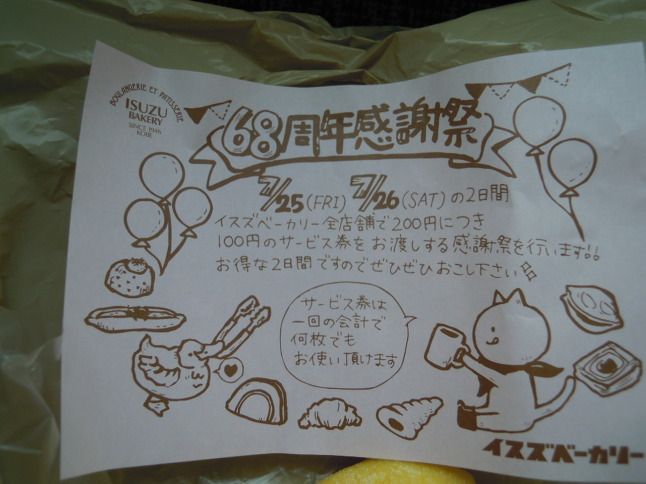 BOULANGERIE ET PATISSERIE
ISUZU
BAKERY
SINCE 1946
KOBE
68周年感謝祭
7/25(FRI) 7/26(SAT)の2日間
イスズベーカリー全店舗で200円につき
100円のサービス券をお渡しする感謝祭を行います!!
お得な2日間ですのでぜひぜひおこし下さい
サービス券は
一回の会計で
何枚でも
お使い頂けます
イスズベーカリー